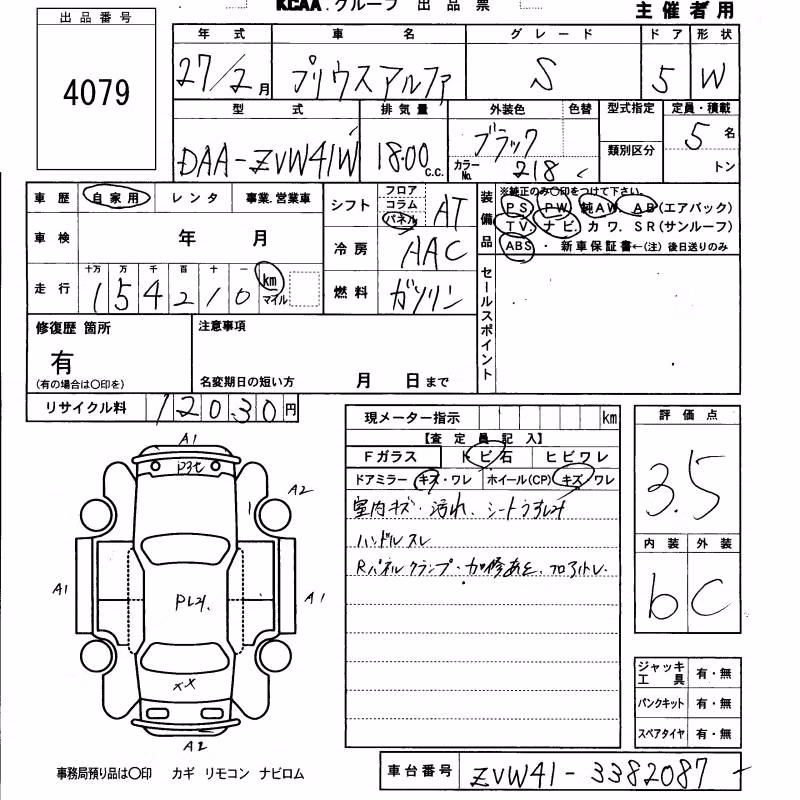 KCAA.グループ 出品票
主催者用
出品番号
4079
年式 車名 グレード ドア 形状
27/2月 プリウスアルファ S 5 W
型式 排気量 外装色 色替 型式指定 定員・積載
DAA-ZVW41W 1800c.c. ブラック 類別区分 5名
カラーNo. 218 トン
車歴 自家用 レンタ 事業.営業車
シフト フロア コラム パネル AT
装備品 ※純正のみ○印をつけて下さい。
PS. PW. 純AW. AB(エアバック)
TV. ナビ. カワ. SR(サンルーフ)
ABS ・ 新車保証書←(注) 後日送りのみ
車検 年 月
冷房 AAC
走行 十万 万 千 百 十 一 km マイル
154210
燃料 ガソリン
セールスポイント
修復歴 箇所
有
(有の場合は○印を)
注意事項
名変期日の短い方 月 日まで
リサイクル料 12030円
現メーター指示 km
【査定員記入】
Fガラス トビ石 ヒビワレ
ドアミラー キズ・ワレ ホイール(CP) キズ ワレ
室内キズ・汚れ、シートうすよみ
ハンドルスレ
Rパネルクランプ・加修あと、フロアトレ.
評価点
3.5
内装 外装
b C
A1
A2
A1 A1
XX
A2
ジャッキ工具 有・無
パンクキット 有・無
スペアタイヤ 有・無
事務局預り品は○印 カギ リモコン ナビロム
車台番号 ZVW41-3382087